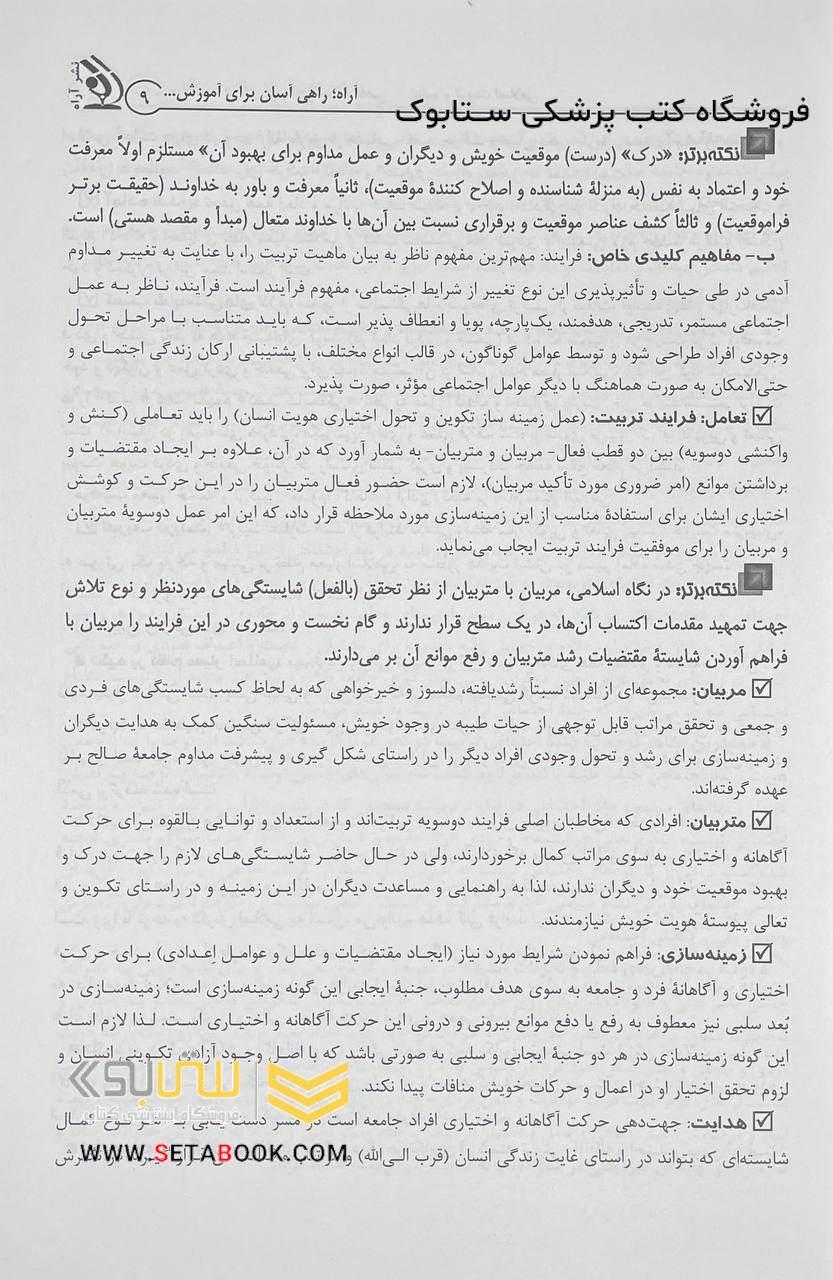 نشر آراه
۹
آراه؛ راهی آسان برای آموزش...
فروشگاه کتب پزشکی ستابوک
نکته‌برتر: «درک» (درست) موقعیت خویش و دیگران و عمل مداوم برای بهبود آن» مستلزم اولاً معرفت
خود و اعتماد به نفس (به منزلهٔ شناسنده و اصلاح کنندهٔ موقعیت)، ثانیاً معرفت و باور به خداوند (حقیقت برتر
فراموقعیت) و ثالثاً کشف عناصر موقعیت و برقراری نسبت بین آن‌ها با خداوند متعال (مبدأ و مقصد هستی) است.
ب- مفاهیم کلیدی خاص: فرایند: مهم‌ترین مفهوم ناظر به بیان ماهیت تربیت را، با عنایت به تغییر مداوم
آدمی در طی حیات و تأثیرپذیری این نوع تغییر از شرایط اجتماعی، مفهوم فرآیند است. فرآیند، ناظر به عمل
اجتماعی مستمر، تدریجی، هدفمند، یک‌پارچه، پویا و انعطاف پذیر است، که باید متناسب با مراحل تحول
وجودی افراد طراحی شود و توسط عوامل گوناگون، در قالب انواع مختلف، با پشتیبانی ارکان زندگی اجتماعی و
حتی‌الامکان به صورت هماهنگ با دیگر عوامل اجتماعی مؤثر، صورت پذیرد.
☑ تعامل: فرایند تربیت: (عمل زمینه ساز تکوین و تحول اختیاری هویت انسان) را باید تعاملی (کنش و
واکنشی دوسویه) بین دو قطب فعال- مربیان و متربیان- به شمار آورد که در آن، علاوه بر ایجاد مقتضیات و
برداشتن موانع (امر ضروری مورد تأکید مربیان)، لازم است حضور فعال متربیان را در این حرکت و کوشش
اختیاری ایشان برای استفادهٔ مناسب از این زمینه‌سازی مورد ملاحظه قرار داد، که این امر عمل دوسویهٔ متربیان
و مربیان را برای موفقیت فرایند تربیت ایجاب می‌نماید.
نکته‌برتر: در نگاه اسلامی، مربیان با متربیان از نظر تحقق (بالفعل) شایستگی‌های موردنظر و نوع تلاش
جهت تمهید مقدمات اکتساب آن‌ها، در یک سطح قرار ندارند و گام نخست و محوری در این فرایند را مربیان با
فراهم آوردن شایستهٔ مقتضیات رشد متربیان و رفع موانع آن بر می‌دارند.
☑ مربیان: مجموعه‌ای از افراد نسبتاً رشدیافته، دلسوز و خیرخواهی که به لحاظ کسب شایستگی‌های فردی
و جمعی و تحقق مراتب قابل توجهی از حیات طیبه در وجود خویش، مسئولیت سنگین کمک به هدایت دیگران
و زمینه‌سازی برای رشد و تحول وجودی افراد دیگر را در راستای شکل گیری و پیشرفت مداوم جامعهٔ صالح بر
عهده گرفته‌اند.
☑ متربیان: افرادی که مخاطبان اصلی فرایند دوسویه تربیت‌اند و از استعداد و توانایی بالقوه برای حرکت
آگاهانه و اختیاری به سوی مراتب کمال برخوردارند، ولی در حال حاضر شایستگی‌های لازم را جهت درک و
بهبود موقعیت خود و دیگران ندارند، لذا به راهنمایی و مساعدت دیگران در این زمینه و در راستای تکوین و
تعالی پیوستهٔ هویت خویش نیازمندند.
☑ زمینه‌سازی: فراهم نمودن شرایط مورد نیاز (ایجاد مقتضیات و علل و عوامل اِعدادی) برای حرکت
اختیاری و آگاهانهٔ فرد و جامعه به سوی هدف مطلوب، جنبهٔ ایجابی این گونه زمینه‌سازی است؛ زمینه‌سازی در
بُعد سلبی نیز معطوف به رفع یا دفع موانع بیرونی و درونی این حرکت آگاهانه و اختیاری است. لذا لازم است
این گونه زمینه‌سازی در هر دو جنبهٔ ایجابی و سلبی به صورتی باشد که با اصل وجود آزادی تکوینی انسان و
لزوم تحقق اختیار او در اعمال و حرکات خویش منافات پیدا نکند.
ستابوک
فروشگاه اینترنتی کتاب
☑ هدایت: جهت‌دهی حرکت آگاهانه و اختیاری افراد جامعه است در مسر دست یابی به هر نوع کمال
WWW.SETABOOK.COM
شایسته‌ای که بتواند در راستای غایت زندگی انسان (قرب الی‌الله) و